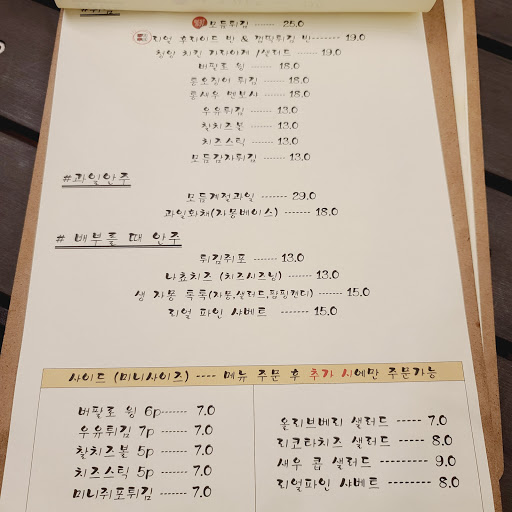 모듬튀김 ------ 25.0
리얼 후라이드 반 & 깐풍튀김 반------- 19.0
청양 치킨 가라아게 /샐러드 ---- 19.0
버팔로 윙 ----- 18.0
통오징어 튀김 ----- 18.0
통새우 멘보샤 ------ 18.0
우유튀김 ----- 13.0
찰치즈볼 ----- 13.0
치즈스틱 ----- 13.0
모듬감자튀김 ----- 13.0
#과일안주
모듬계절과일 ------- 29.0
과일화채(자몽베이스) ------- 18.0
# 배부를 때 안주
튀김쥐포 ------ 13.0
나쵸치즈 (치즈시즈닝) ------ 13.0
생 자몽 톡톡(자몽,샐러드,팝핑캔디)------ 15.0
리얼 파인 샤베트 ------- 15.0
사이드 (미니사이즈) ---- 메뉴 주문 후 추가 시에만 주문가능
버팔로 윙 6p------ 7.0
우유튀김 7p ----- 7.0
찰치즈볼 5p ----- 7.0
치즈스틱 5p ----- 7.0
미니쥐포튀김 ----- 7.0
올리브베리 샐러드 ----- 7.0
리코타치즈 샐러드 ----- 8.0
새우 콥 샐러드 --------- 9.0
리얼파인 샤베트 -------- 8.0